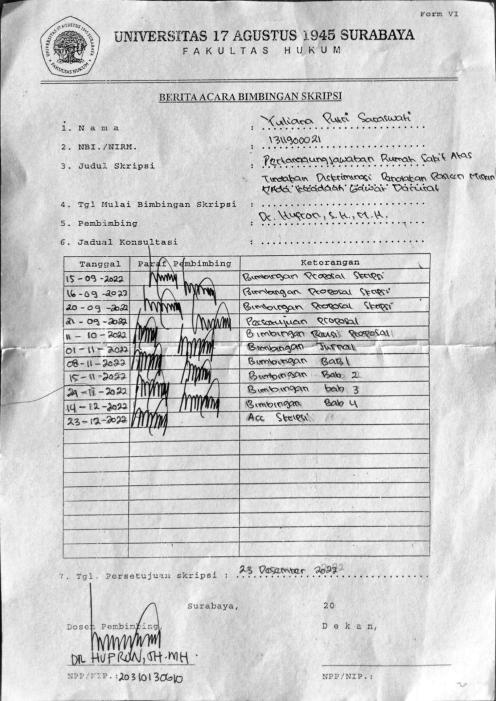 Form VI
UNIVERSITAS 17 AGUSTUS 1945 SURABAYA
FAKULTAS HUKUM
BERITA ACARA BIMBINGAN SKRIPSI
1. Nama : Yuliana Putri Saraswati
2. NBI./NIRM. : 1311900021
3. Judul Skripsi : Pertanggungjawaban Rumah Sakit Atas
Tindakan Diskriminasi Penolakan Pasien Miskin
Pada Keadaan Gawat Darurat
4. Tgl Mulai Bimbingan Skripsi :
5. Pembimbing : Dr. Hufron, S.H., M.H.
6. Jadual Konsultasi :
Tanggal Paraf Pembimbing Keterangan
15-09-2022 Bimbingan Proposal Skripsi
16-09-2022 Bimbangan Proposal Skripsi
20-09-2022 Bimbingan Proposal Skripsi
21-09-2022 Persetujuan Proposal
11-10-2022 Bimbingan Revisi Proposal
01-11-2022 Bimbingan Jurnal
08-11-2022 Bimbingan Bab 1
15-11-2022 Bimbingan Bab 2
29-11-2022 Bimbingan bab 3
14-12-2022 Bimbingan Bab 4
23-12-2022 Acc Skripsi
7. Tgl. Persetujuan skripsi : 23 Desember 2022
Surabaya, 20
Dosen Pembimbing, Dekan,
DR. HUFRON, SH. MH.
NPP/NIP.: 20310130610 NPP/NIP.: